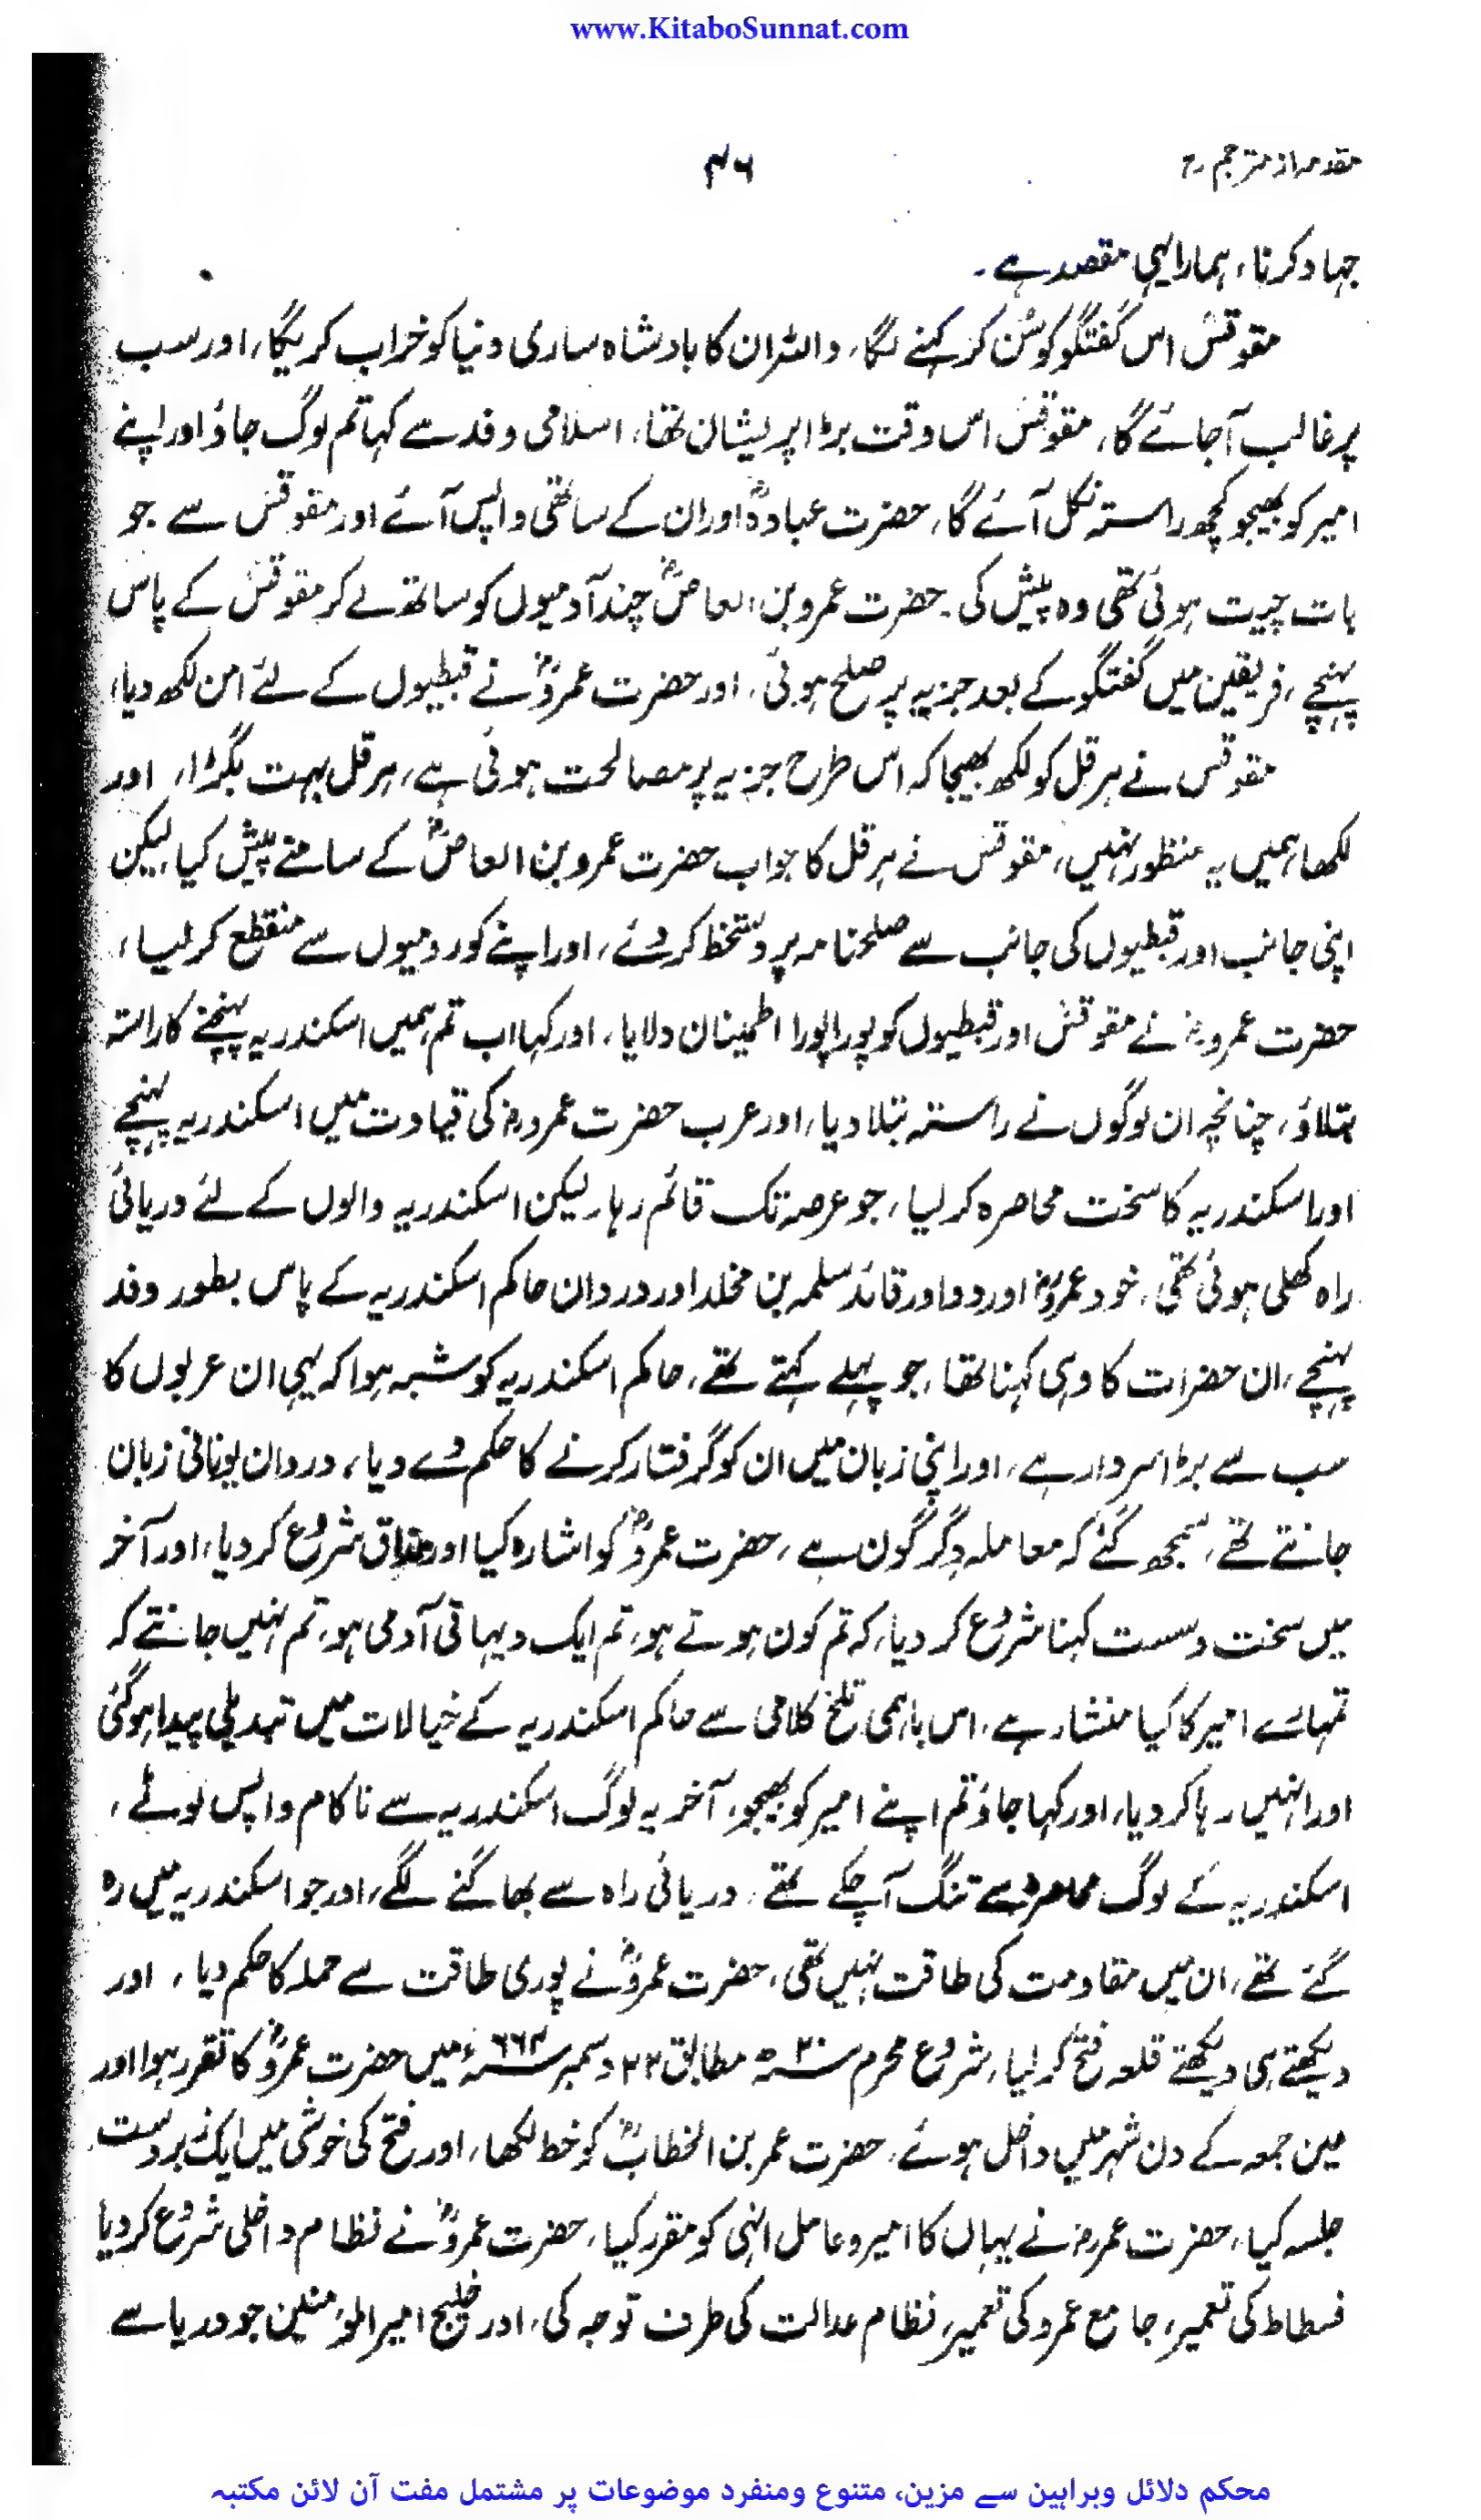 www.KitaboSunnat.com
مقدمہ از مترجم رح
۴۶
جہاد کرنا، ہمارا یہی مقصد ہے۔
مقوقس اس گفتگو کو سُن کر کہنے لگا، واللہ ان کا بادشاہ ساری دنیا کو خراب کریگا، اور سب
پر غالب آجائے گا، مقوقس اس وقت بڑا پریشان تھا، اسلامی وفد سے کہا تم لوگ جاؤ اور اپنے
امیر کو بھیجو کچھ راستہ نکل آئے گا، حضرت عبادہؓ اور ان کے ساتھی واپس آئے اور مقوقس سے جو
بات چیت ہوئی تھی وہ پیش کی۔ حضرت عمرو بن العاصؓ چند آدمیوں کو ساتھ لے کر مقوقس کے پاس
پہنچے، فریقین میں گفتگو کے بعد جزیہ پر صلح ہوئی، اور حضرت عمروؓ نے قبطیوں کے لئے امن لکھ دیا،
مقوقس نے ہرقل کو لکھ بھیجا کہ اس طرح جزیہ پر مصالحت ہوئی ہے، ہرقل بہت بگڑا، اور
لکھا ہمیں یہ منظور نہیں، مقوقس نے ہرقل کا جواب حضرت عمرو بن العاصؓ کے سامنے پیش کیا، لیکن
اپنی جانب اور قبطیوں کی جانب سے صلحنامہ پر دستخط کر دئے، اور اپنے کو رومیوں سے منقطع کر لیا،
حضرت عمروؓ نے مقوقس اور قبطیوں کو پورا پورا اطمینان دلایا، اور کہا اب تم ہمیں اسکندریہ پہنچنے کا راستہ
بتلاؤ، چنانچہ ان لوگوں نے راستہ بتلا دیا، اور عرب حضرت عمروؓ کی قیادت میں اسکندریہ پہنچے
اور اسکندریہ کا سخت محاصرہ کر لیا، جو عرصہ تک قائم رہا، لیکن اسکندریہ والوں کے لئے دریائی
راہ کھلی ہوئی تھی، خود عمروؓ اور دو اور قائد سلمہ بن مخلد اور دردان حاکم اسکندریہ کے پاس بطور وفد
پہنچے، ان حضرات کا وہی کہنا تھا، جو پہلے کہتے تھے، حاکم اسکندریہ کو شبہ ہوا کہ یہی ان عربوں کا
سب سے بڑا سردار ہے، اور اپنی زبان میں ان کو گرفتار کرنے کا حکم دے دیا، دردان یونانی زبان
جانتے تھے، سمجھ گئے کہ معاملہ دِگر گون ہے، حضرت عمروؓ کو اشارہ کیا اور مذاق شروع کر دیا، اور آخر
میں سخت وسست کہنا شروع کر دیا، کہ تم کون ہوتے ہو، تم ایک دیہاتی آدمی ہو، تم نہیں جانتے کہ
تمہارے امیر کا کیا منشار ہے، اس باہمی تلخ کلامی سے حاکم اسکندریہ کے خیالات میں تبدیلی پیدا ہوگئی
اور انہیں رہا کر دیا، اور کہا جاؤ تم اپنے امیر کو بھیجو، آخر یہ لوگ اسکندریہ سے ناکام واپس لوٹے،
اسکندریہ کے لوگ محاصرہ سے تنگ آچکے تھے، دریائی راہ سے بھاگنے لگے، اور جو اسکندریہ میں رہ
گئے تھے، ان میں مقاومت کی طاقت نہیں تھی، حضرت عمروؓ نے پوری طاقت سے حملہ کا حکم دیا، اور
دیکھتے ہی دیکھتے قلعہ فتح کر لیا، شروع محرم ۲۰ھ مطابق ۲۲ دسمبر ۶۶۴ء میں حضرت عمروؓ کا تقرر ہوا اور
مین جمعہ کے دن شہر میں داخل ہوئے، حضرت عمر بن الخطابؓ کو خط لکھا، اور فتح کی خوشی میں ایک زبردست
جلسہ کیا، حضرت عمرؓ نے یہاں کا امیر و عامل انہی کو مقرر کیا، حضرت عمروؓ نے نظام داخلی شروع کر دیا
فسطاط کی تعمیر، جامع عمرو کی تعمیر، نظام عدالت کی طرف توجہ کی، اور خلیج امیر المؤمنین جو دریا سے
محکم دلائل وبراہین سے مزین، متنوع ومنفرد موضوعات پر مشتمل مفت آن لائن مکتبہ